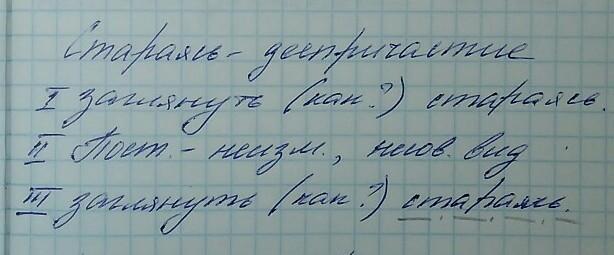 Стараясь - деепричастие
I заглянуть (как?) стараясь.
II Пост. - неизм., несов. вид
III заглянуть (как?) стараясь.